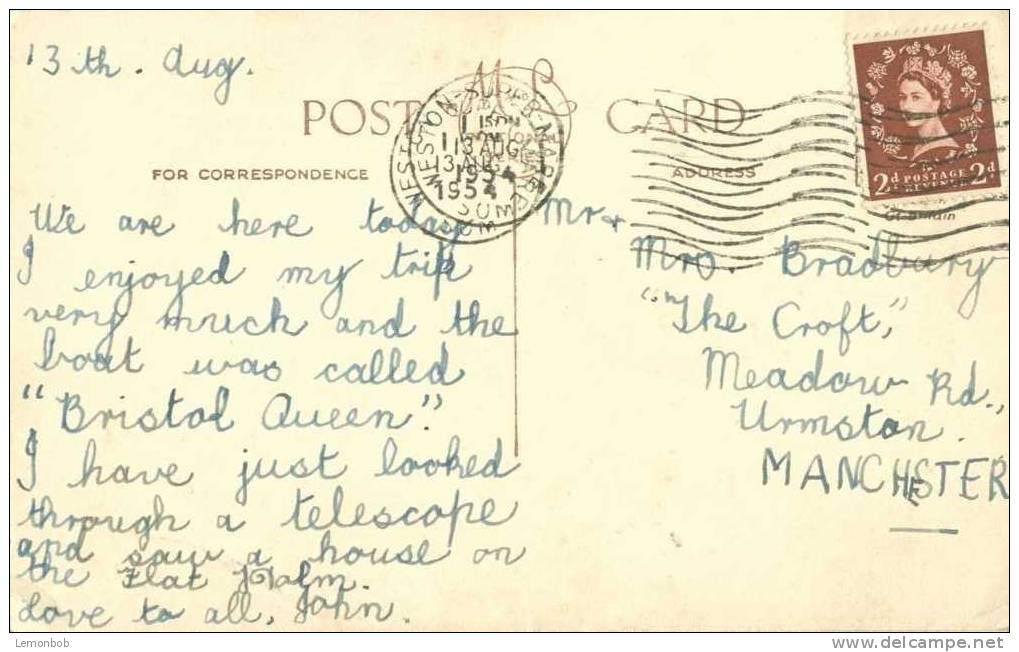 13th. Aug.
POST CARD
FOR CORRESPONDENCE
ADDRESS
WESTON-SUPER-MARE
SOM
13 AUG
1954
2d POSTAGE 2d
REVENUE
We are here today
I enjoyed my trip
very much and the
boat was called
"Bristol Queen".
I have just looked
through a telescope
and saw a house on
the Flat Holm.
Love to all, John.
Mr +
Mrs. Bradbury
"The Croft,"
Meadow Rd.,
Urmston.
MANCHESTER
Lemonbob
www.delcampe.net